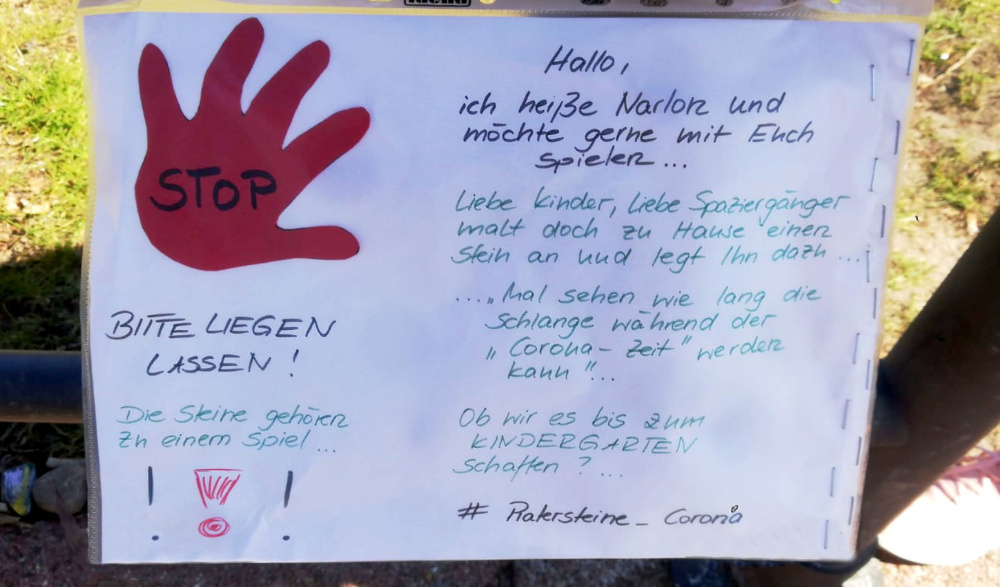 STOP
BITTE LIEGEN
LASSEN !
Die Steine gehören
zu einem Spiel ...
! ! !
Hallo,
ich heiße Narlon und
möchte gerne mit Euch
spielen ...
Liebe Kinder, liebe Spaziergänger
malt doch zu Hause einen
Stein an und legt Ihn dazu ...
...„Mal sehen wie lang die
Schlange während der
„Corona-Zeit" werden
kann"...
Ob wir es bis zum
KINDERGARTEN
schaffen ?...
# _ Corona